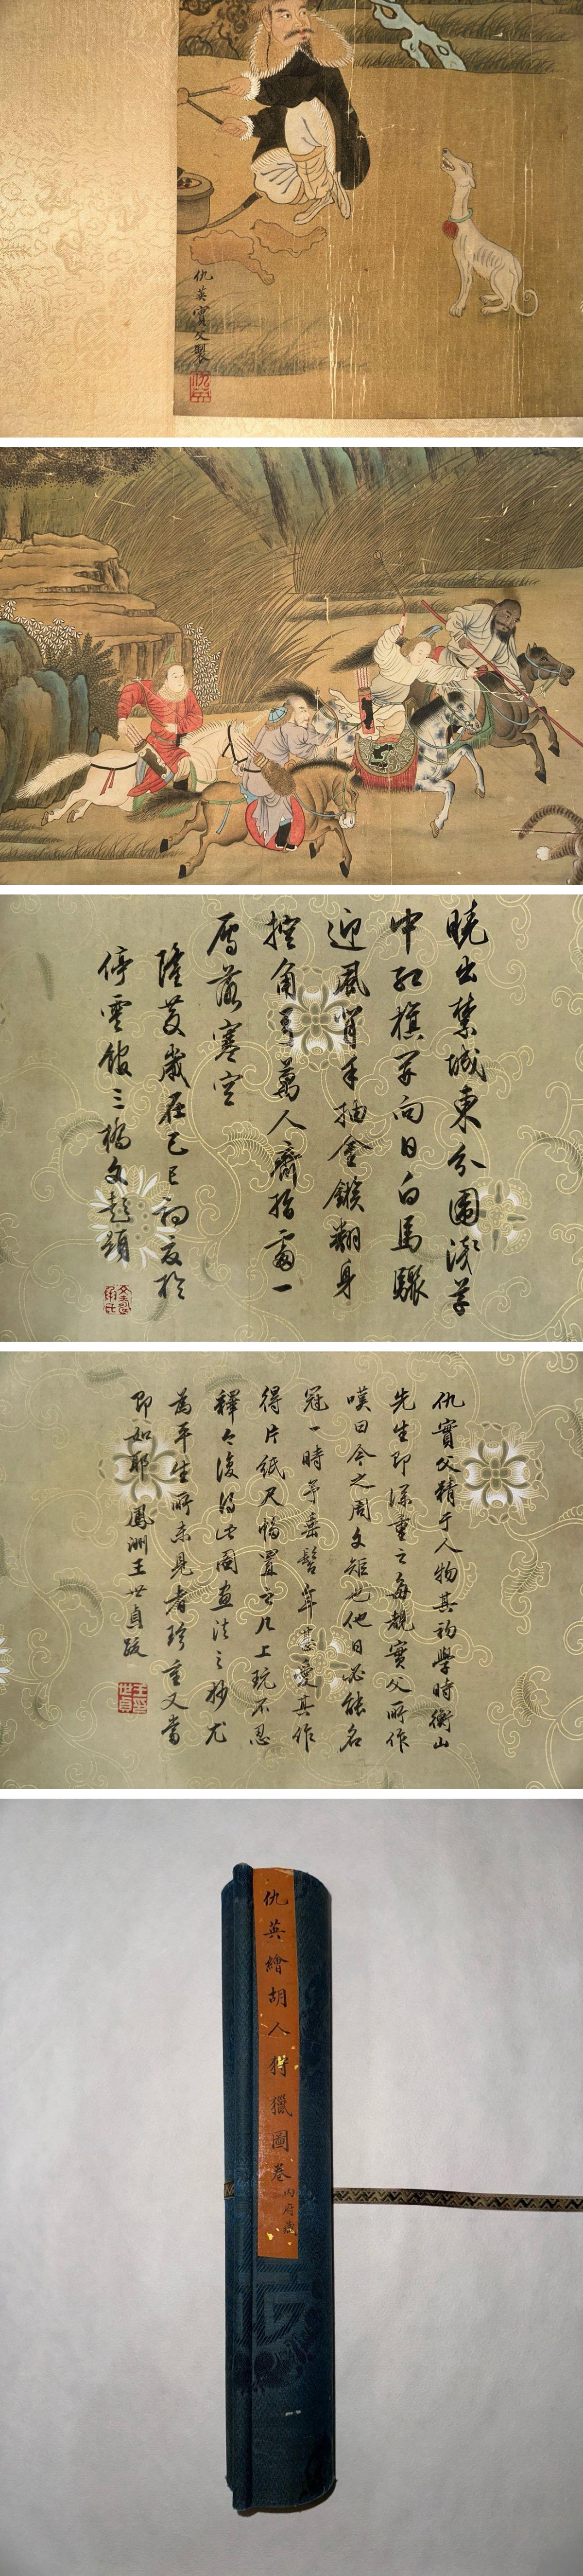 仇英實父製
曉出禁城東分圍淺草
中紅旗開向日白馬驟
迎風背手抽金鏃翻身
控角弓萬人齊指處一
雁落寒空
隆慶歲在己巳初夏於
停雲館三橋文彭題
仇實父精于人物其初學時衡山
先生即深重之每觀實父所作
嘆曰今之周文矩也他日必能名
冠一時予垂髫年甚愛其作
得片紙尺幅置之几上玩不忍
釋今復得此圖畫法之妙尤
為平生所未見者珍重又當
即如耶鳳洲王世貞跋
王世貞
仇英繪胡人狩獵圖卷
內府藏